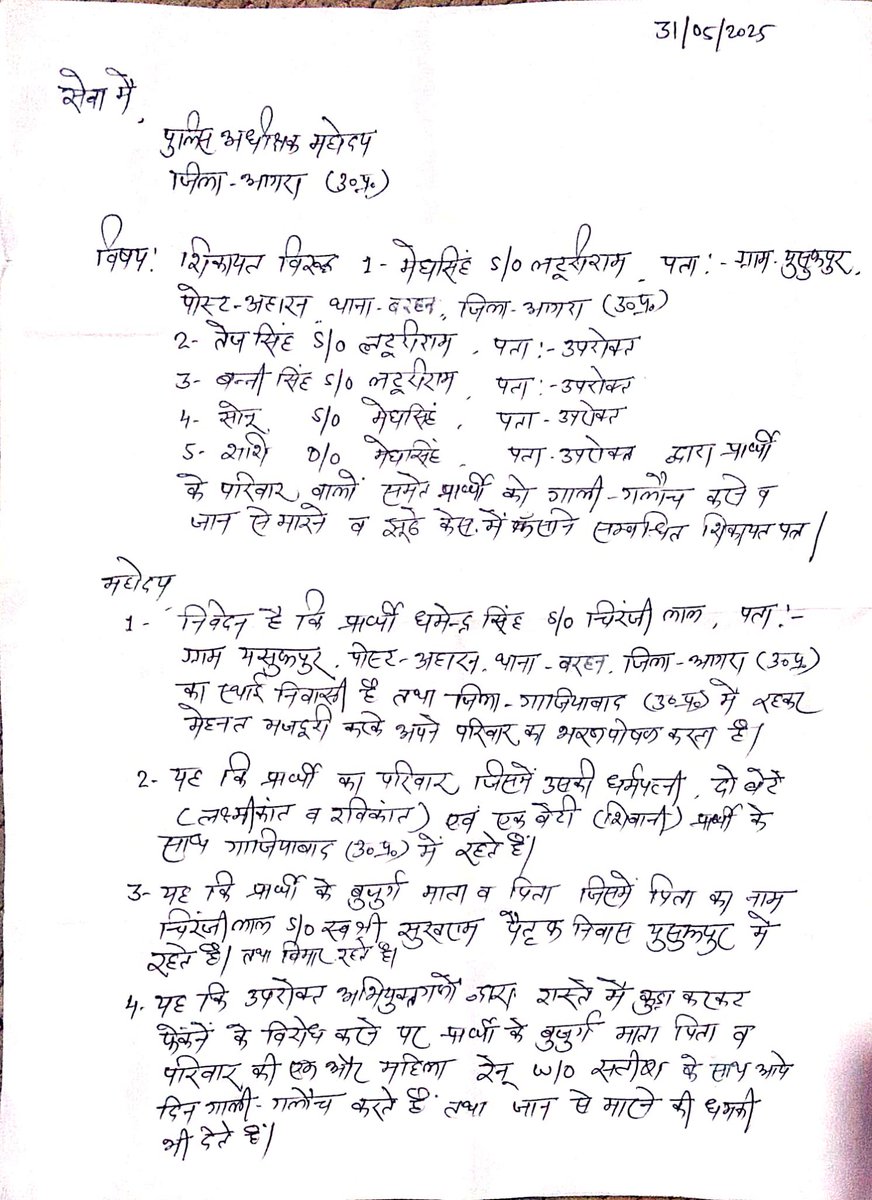 31/05/2025
सेवा में,
पुलिस अधीक्षक महोदय
जिला-आगरा (उ०प्र०)
विषय: शिकायत विरूद्ध 1- मेघसिंह S/O लटूरीराम, पता:- ग्राम-युसुफपुर,
पोस्ट-अहारन, थाना-बरहन, जिला-आगरा (उ०प्र०)
2- तेज सिंह S/O लटूरीराम, पता:- उपरोक्त
3- बन्नी सिंह S/O लटूरीराम, पता:- उपरोक्त
4- सोनू S/O मेघसिंह, पता- उपरोक्त
5- शशि D/O मेघसिंह, पता-उपरोक्त द्वारा प्रार्थी
के परिवार वालों समेत प्रार्थी को गाली-गलौच करने व
जान से मारने व झूठे केस में फँसाने सम्बन्धित शिकायत पत्र।
महोदय,
1- निवेदन है कि प्रार्थी धमेन्द्र सिंह S/O चिरंजी लाल, पता:-
ग्राम युसुफपुर, पोस्ट-अहारन, थाना-बरहन, जिला-आगरा (उ०प्र०)
का स्थाई निवासी है तथा जिला-गाजियाबाद (उ०प्र०) में रहकर
मेहनत मजदूरी करके अपने परिवार का भरणपोषण करता है।
2- यह कि प्रार्थी का परिवार जिसमें उसकी धर्मपत्नी, दो बेटे
(लक्ष्मीकांत व रविकांत) एवं एक बेटी (शिवानी) प्रार्थी के
साथ गाजियाबाद (उ०प्र०) में रहते हैं।
3- यह कि प्रार्थी के बुजुर्ग माता व पिता जिसमें पिता का नाम
चिरंजी लाल S/O स्व श्री सुखराम पैतृक निवास युसुफपुर में
रहते है। तथा बिमार रहते है।
4- यह कि उपरोक्त अभियुक्तगणों द्वारा रास्ते में कुड़ा करकट
फेंकनें के विरोध करने पर प्रार्थी के बुजुर्ग माता पिता व
परिवार की एक और महिला रेनू W/O सतीश के साथ आये
दिन गाली-गलौच करते हैं तथा जान से मारने की धमकी
भी देते हैं।